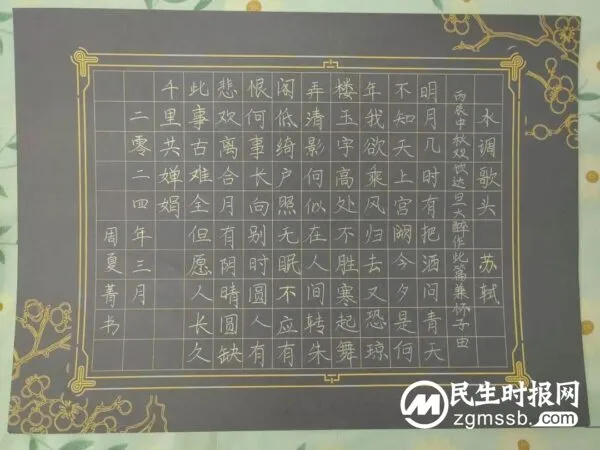 水调歌头 苏轼
丙辰中秋欢饮达旦大醉作此篇兼怀子由
明月几时有把酒问青天
不知天上宫阙今夕是何
年我欲乘风归去又恐琼
楼玉宇高处不胜寒起舞
弄清影何似在人间转朱
阁低绮户照无眠不应有
恨何事长向别时圆人有
悲欢离合月有阴晴圆缺
此事古难全但愿人长久
千里共婵娟
二零二四年三月
周夏菁书
民生时报网
zgmssb.com